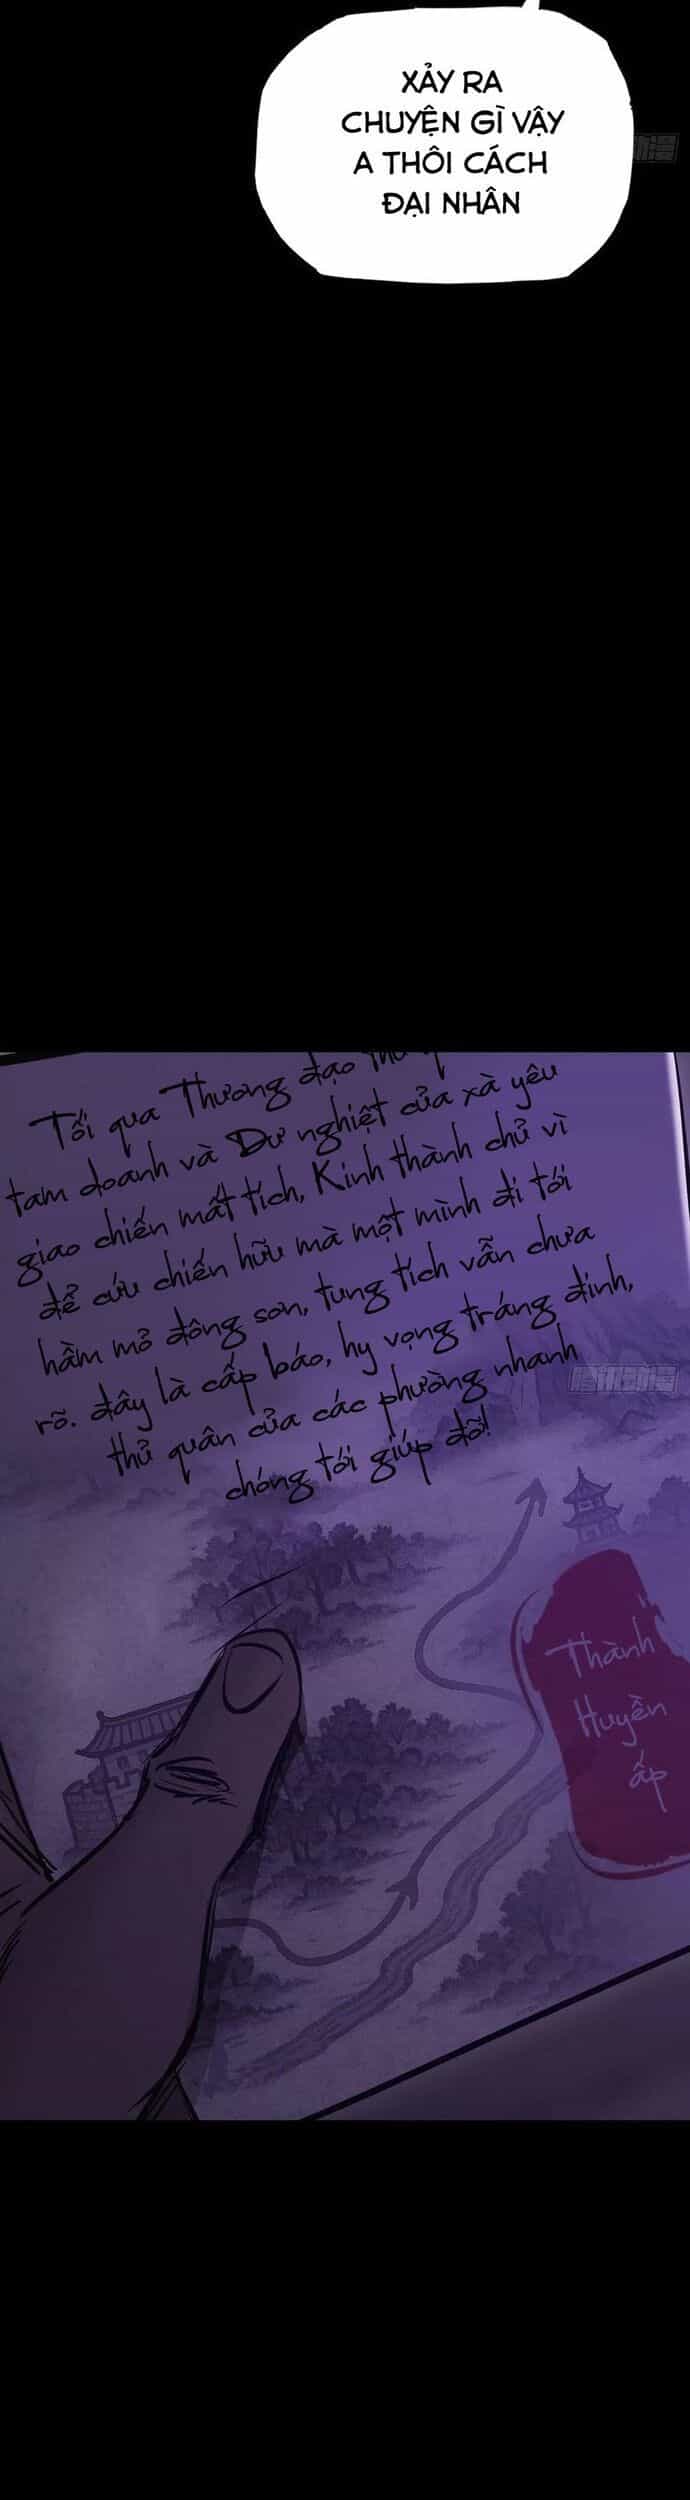 XẢY RA
CHUYỆN GÌ VẬY
A THÔI CÁCH
ĐẠI NHÂN
Tối qua Thương đạo
tam doanh và Dư nghiệt của xà yêu
giao chiến mất tích, Kinh thành chủ vì
để cứu chiến hữu mà một mình đi tới
hầm mỏ đông sơn, tung tích vẫn chưa
rõ. đây là cấp báo, hy vọng tráng đinh,
thủ quân của các phường nhanh
chóng tới giúp đỡ!
Thành
Huyền
ấp